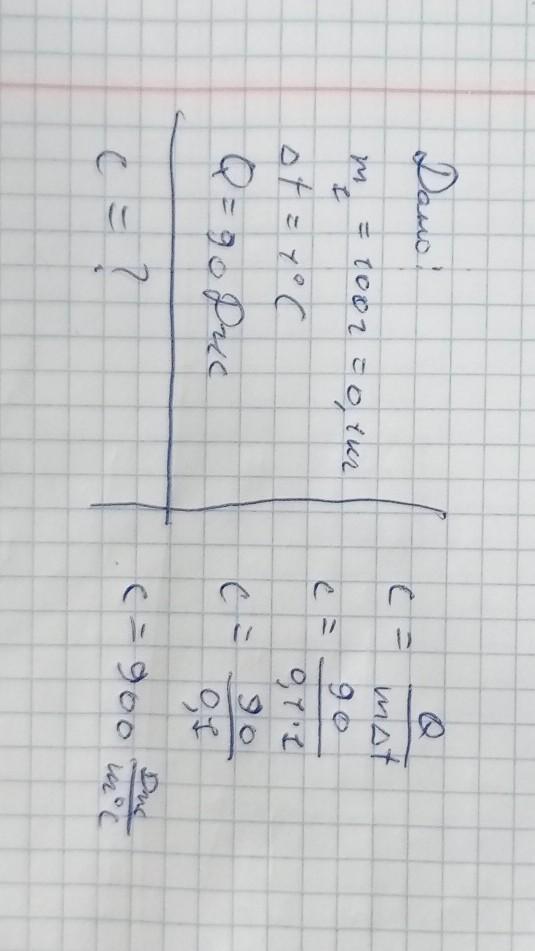 Дано:
m₁ = 100г = 0,1кг
Δt = 1°C
Q = 90 Дж
c = ?
c = Q/mΔt
c = 90/0,1·1
c = 90/0,1
c = 900 Дж/m°C